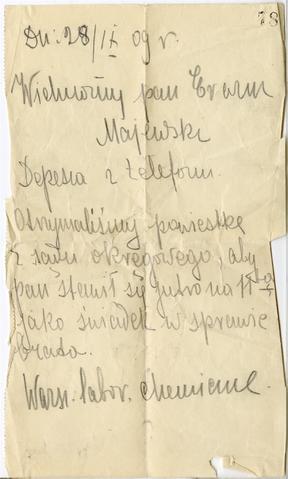 78
Dn: 28/IX 09 r.
Wielmożny pan Erazm
Majewski
Depesza z telefonu.
Otrzymaliśmy powiestkę
z sądu okręgowego, aby
pan stawił się jutro na 11tą
jako świadek w sprawie
Warsz. labor. chemiczne.